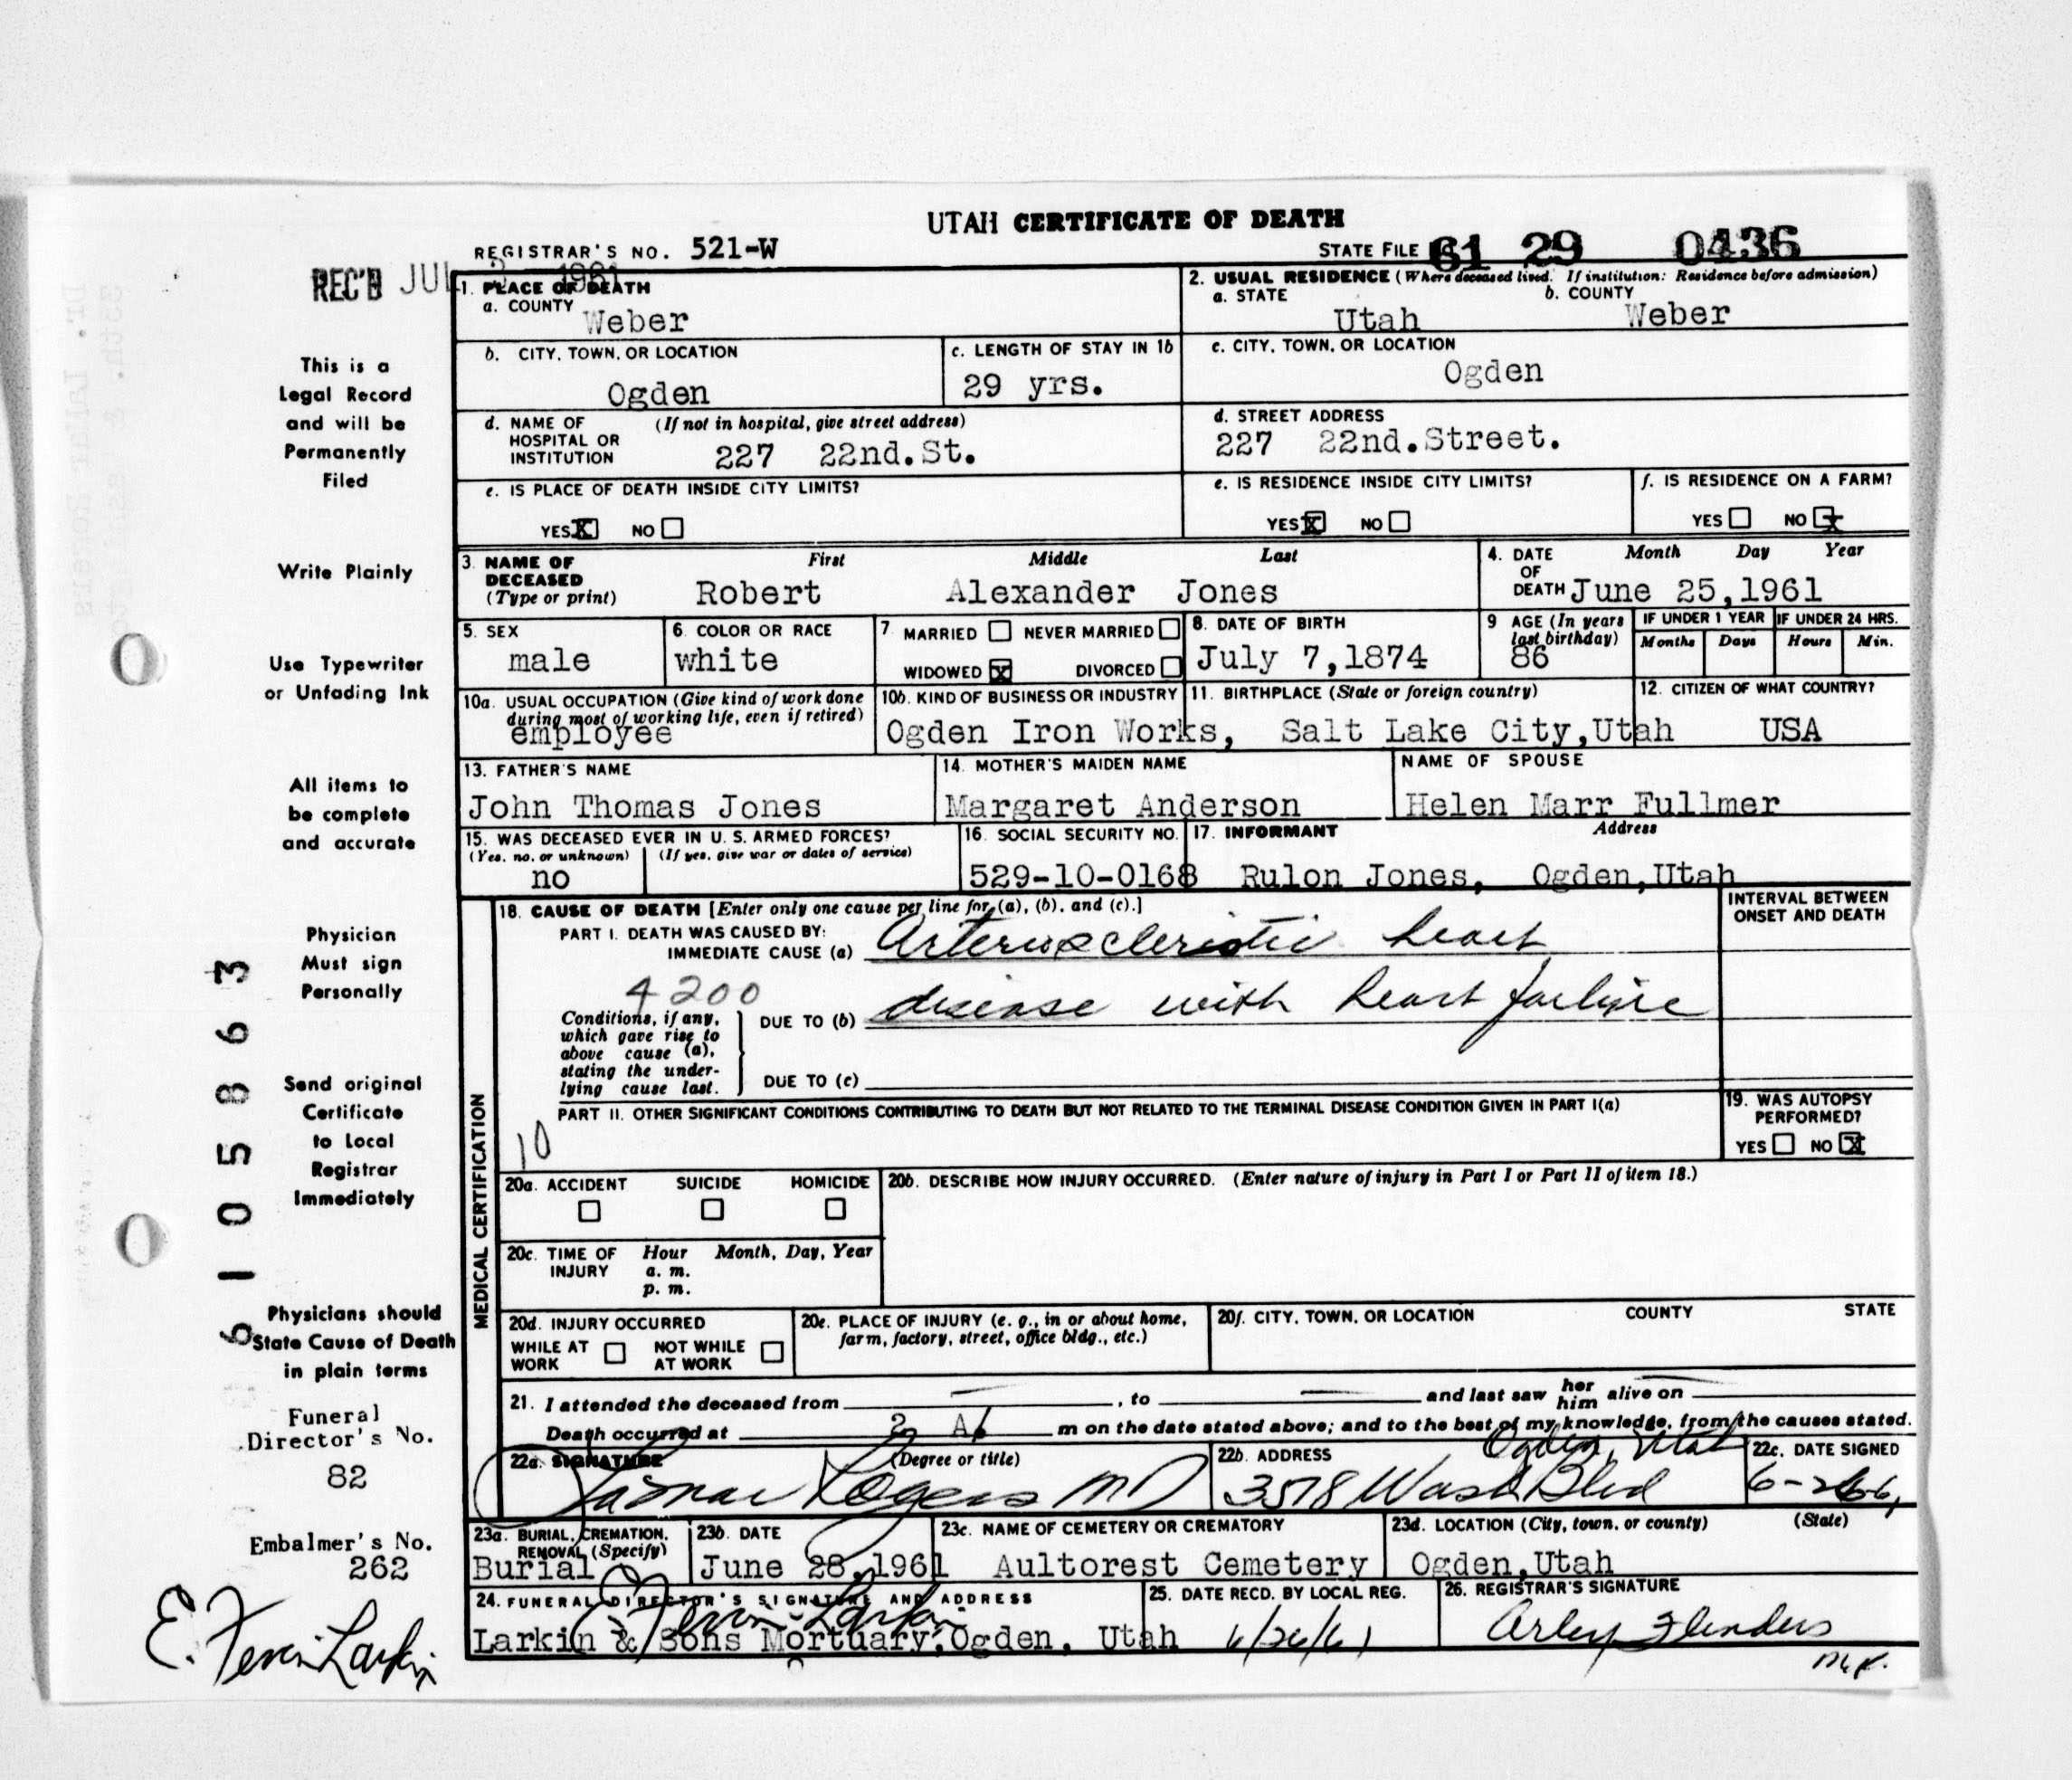 UTAH CERTIFICATE OF DEATH
REGISTRAR'S NO. 521-W
STATE FILE 61 29 0436
REC'D JUL 1961
1. PLACE OF DEATH
a. COUNTY
Weber
2. USUAL RESIDENCE (Where deceased lived. If institution: Residence before admission)
a. STATE b. COUNTY
Utah Weber
b. CITY, TOWN, OR LOCATION
Ogden
c. LENGTH OF STAY IN 1b
29 yrs.
c. CITY, TOWN, OR LOCATION
Ogden
d. NAME OF (If not in hospital, give street address)
HOSPITAL OR
INSTITUTION
227 22nd.St.
d. STREET ADDRESS
227 22nd.Street.
e. IS PLACE OF DEATH INSIDE CITY LIMITS?
YES X NO
e. IS RESIDENCE INSIDE CITY LIMITS?
YES X NO
f. IS RESIDENCE ON A FARM?
YES NO X
3. NAME OF DECEASED
(Type or print)
First Middle Last
Robert Alexander Jones
4. DATE OF DEATH
Month Day Year
June 25,1961
5. SEX
male
6. COLOR OR RACE
white
7. MARRIED NEVER MARRIED
WIDOWED X DIVORCED
8. DATE OF BIRTH
July 7,1874
9 AGE (In years last birthday)
86
IF UNDER 1 YEAR
Months Days
IF UNDER 24 HRS.
Hours Min.
10a. USUAL OCCUPATION (Give kind of work done
during most of working life, even if retired)
employee
10b. KIND OF BUSINESS OR INDUSTRY
Ogden Iron Works,
11. BIRTHPLACE (State or foreign country)
Salt Lake City,Utah
12. CITIZEN OF WHAT COUNTRY?
USA
13. FATHER'S NAME
John Thomas Jones
14. MOTHER'S MAIDEN NAME
Margaret Anderson
NAME OF SPOUSE
Helen Marr Fullmer
15. WAS DECEASED EVER IN U. S. ARMED FORCES?
(Yes, no, or unknown) (If yes, give war or dates of service)
no
16. SOCIAL SECURITY NO.
529-10-0168
17. INFORMANT Address
Rulon Jones, Ogden,Utah
MEDICAL CERTIFICATION
18. CAUSE OF DEATH [Enter only one cause per line for (a), (b), and (c).]
INTERVAL BETWEEN
ONSET AND DEATH
PART I. DEATH WAS CAUSED BY:
IMMEDIATE CAUSE (a) Arteriosclerotic heart
4200
Conditions, if any,
which gave rise to
above cause (a),
stating the under-
lying cause last.
DUE TO (b) disease with heart failure
DUE TO (c)
PART II. OTHER SIGNIFICANT CONDITIONS CONTRIBUTING TO DEATH BUT NOT RELATED TO THE TERMINAL DISEASE CONDITION GIVEN IN PART I(a)
10
19. WAS AUTOPSY
PERFORMED?
YES NO X
20a. ACCIDENT SUICIDE HOMICIDE
20b. DESCRIBE HOW INJURY OCCURRED. (Enter nature of injury in Part I or Part II of item 18.)
20c. TIME OF INJURY
Hour Month, Day, Year
a. m.
p. m.
20d. INJURY OCCURRED
WHILE AT WORK NOT WHILE AT WORK
20e. PLACE OF INJURY (e. g., in or about home,
farm, factory, street, office bldg., etc.)
20f. CITY, TOWN, OR LOCATION COUNTY STATE
21. I attended the deceased from , to and last saw her him alive on
Death occurred at 2 A m on the date stated above; and to the best of my knowledge, from the causes stated.
22a. SIGNATURE (Degree or title)
LaMar Rogers MD
22b. ADDRESS
Ogden, Utah
3578 Wash Blvd
22c. DATE SIGNED
23a. BURIAL, CREMATION,
REMOVAL (Specify)
Burial
23b. DATE
June 28,1961
23c. NAME OF CEMETERY OR CREMATORY
Aultorest Cemetery
23d. LOCATION (City, town, or county) (State)
Ogden,Utah
24. FUNERAL DIRECTOR'S SIGNATURE AND ADDRESS
E. Fervin Larkin
Larkin & Sons Mortuary,Ogden, Utah
25. DATE RECD. BY LOCAL REG.
6/26/61
26. REGISTRAR'S SIGNATURE
Arley Flinders
This is a
Legal Record
and will be
Permanently
Filed
Write Plainly
Use Typewriter
or Unfading Ink
All items to
be complete
and accurate
Physician
Must sign
Personally
Send original
Certificate
to Local
Registrar
Immediately
Physicians should
State Cause of Death
in plain terms
Funeral
Director's No.
82
Embalmer's No.
262
E. Fervin Larkin
6105863